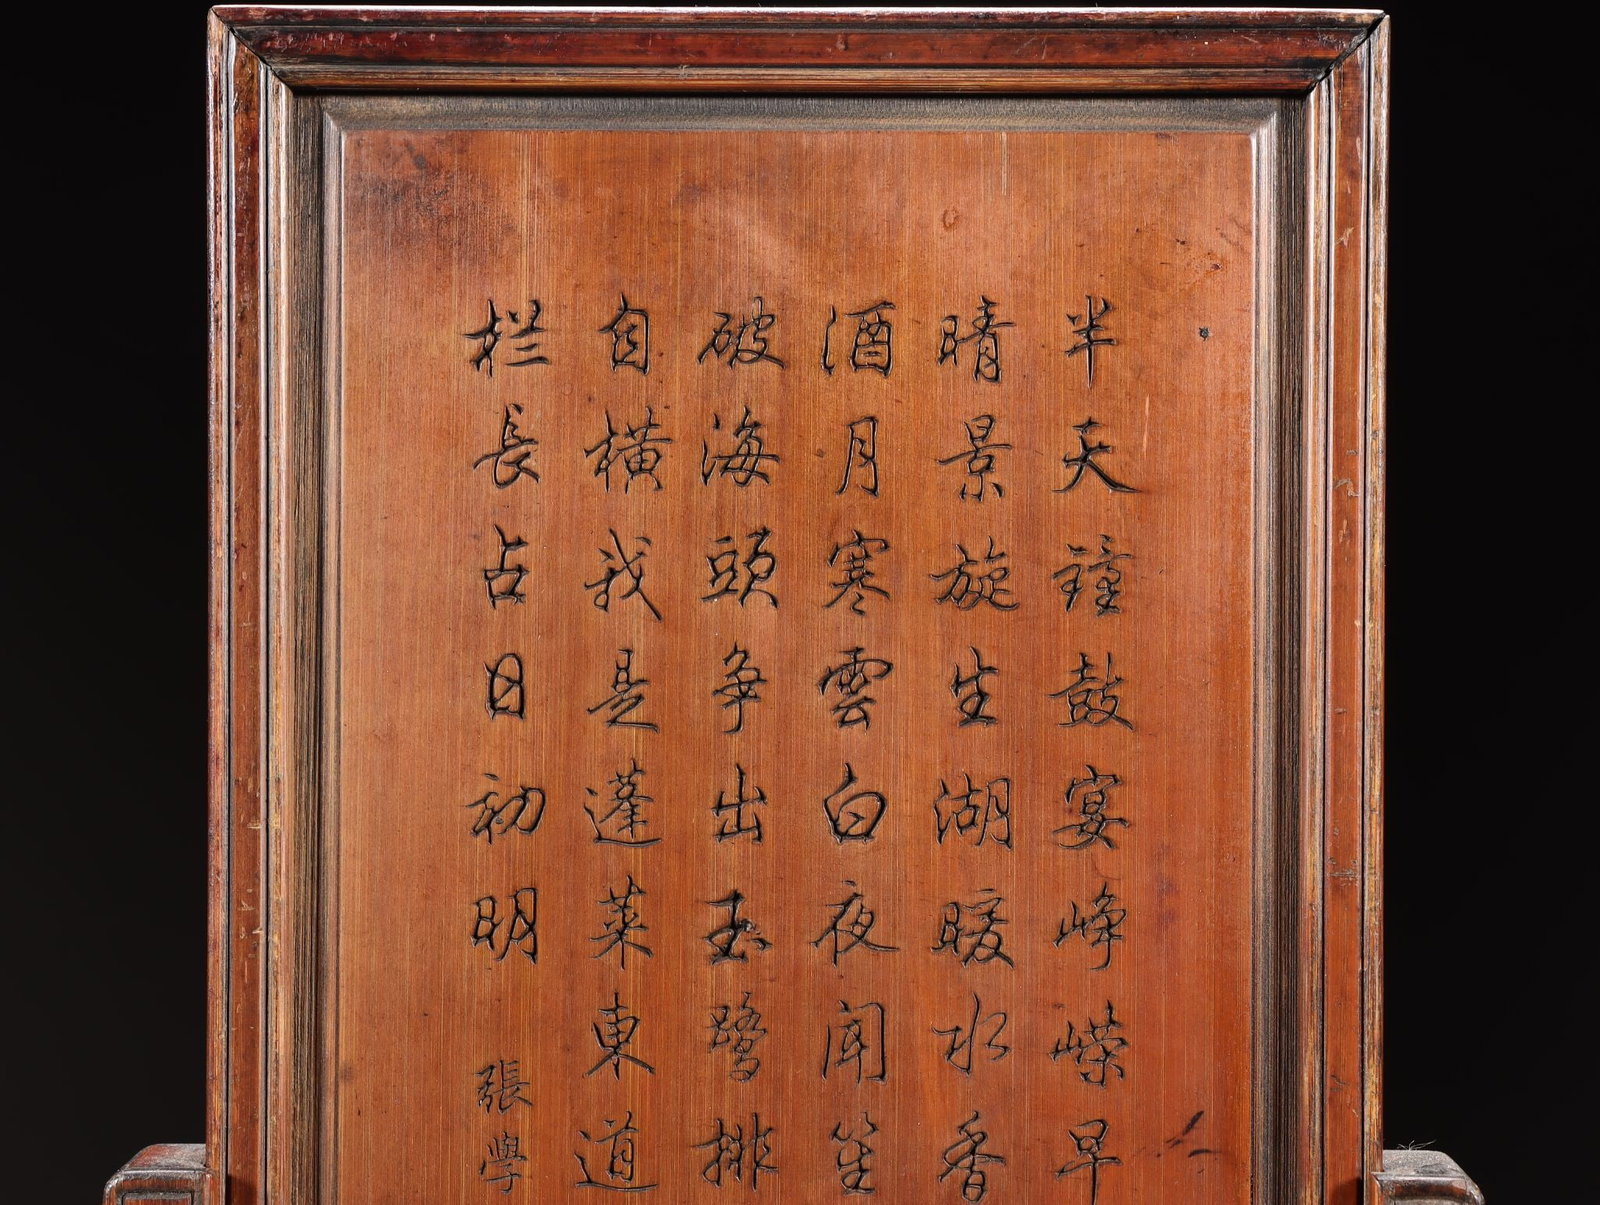 半天鐘鼓宴峥嵘早
晴景旋生湖暖水香
酒月寒雲白夜闻笙
破海頭争出玉鹭排
自横我是蓬莱東道
栏長占日初明
張學